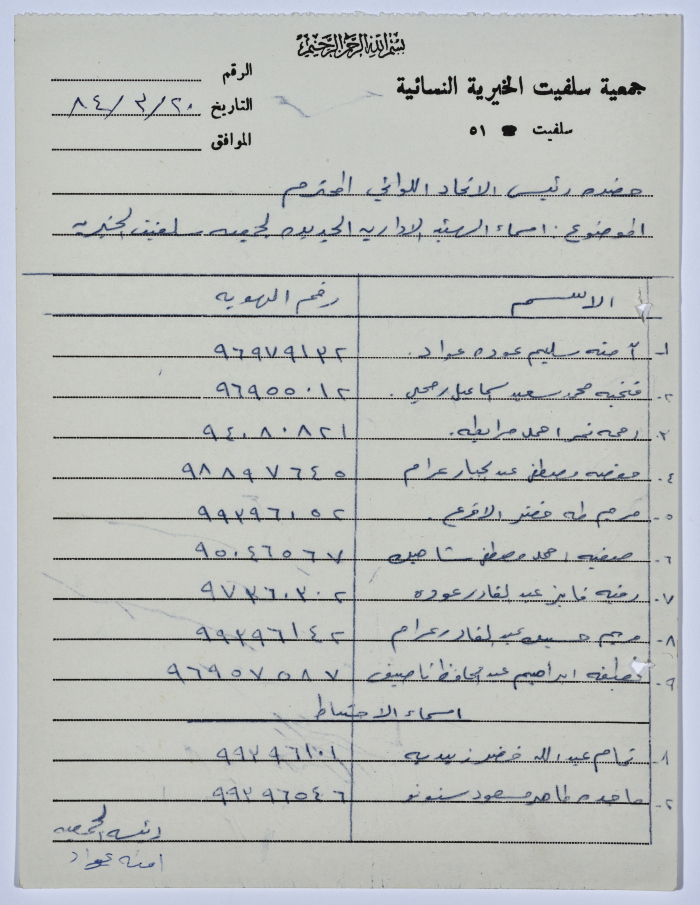 بسم الله الرحمن الرحيم
جمعية سلفيت الخيرية النسائية
سلفيت ☎ ٥١
الرقم
التاريخ ٢٠/٣/٨٤
الموافق
حضرة رئيس الاتحاد اللوائي المحترم
الموضوع : اسماء الهيئه الاداريه الجديده لجمعيه سلفيت الخيريه
الاسم رقم الهويه
١- آمنه سليم عوده عواد. ٩٦٩٧٩١٣٢
٢- فتحيه محمد سعيد اسماعيل . ٩٦٩٥٥٠١٢
٣- نمر احمد مرابطه. ٩٤٠٨٠٨٢١
٤- مصطفى عبد الجبار عزام ٩٨٨٩٧٦٤٥
٥- مريم طه خضر الاقرع . ٩٩٣٩٦١٥٢
٦- صفيه احمد مصطفى شاهين ٩٥٠٤٦٥٦٧
٧- فايز عبد القادر عوده ٩٧٣٦٠٣٠٢
٨- مريم حسين عبد القادر عزام ٩٩٣٩٦١٤٢
٩- لطيفه ابراهيم عبد الحافظ ناصيف ٩٦٩٥٧٥٨٧
اسماء الاحتياط
١- تمام عبد الله خضر زبيديه ٩٩٣٩٦١٠١
٢- ماجده طاهر مسعود سنونو ٩٩٣٩٦٥٤٦
رئيسة الجمعيه
امنه عواد